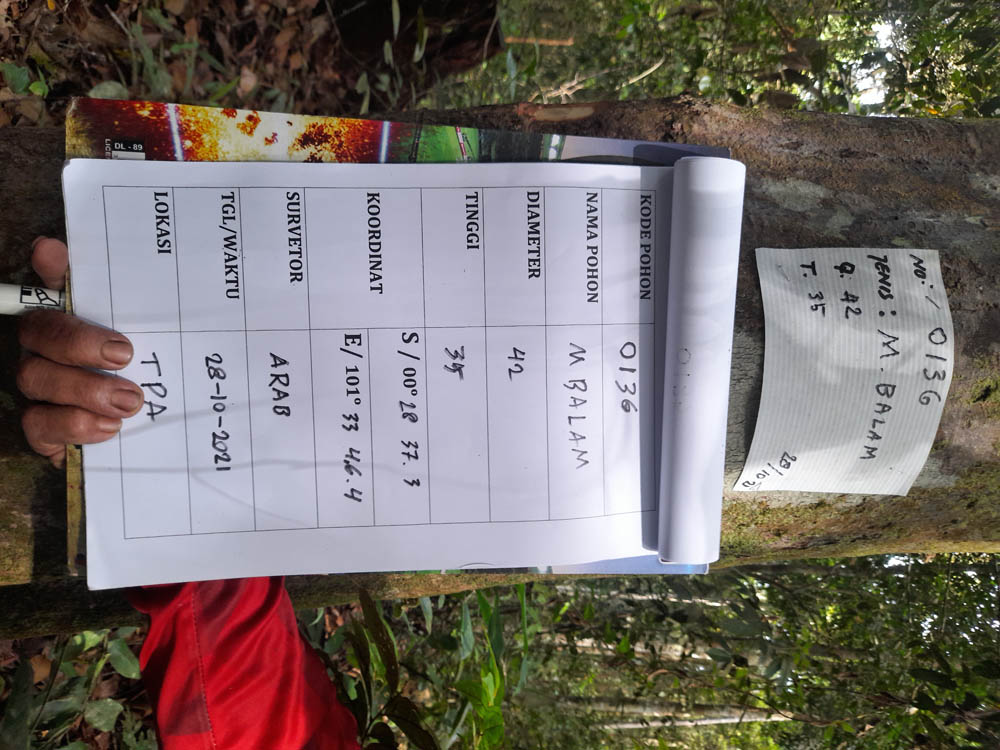 NO: 0136
JENIS: M. BALAM
Q. 42
T. 35
28/10 21
KODE POHON 0136
NAMA POHON M BALAM
DIAMETER 42
TINGGI 35
KOORDINAT S / 00° 28 37. 3
E/ 101° 33 46.4
SURVETOR ARAB
TGL/WAKTU 28-10-2021
LOKASI TPA
DL - 89
LICEN